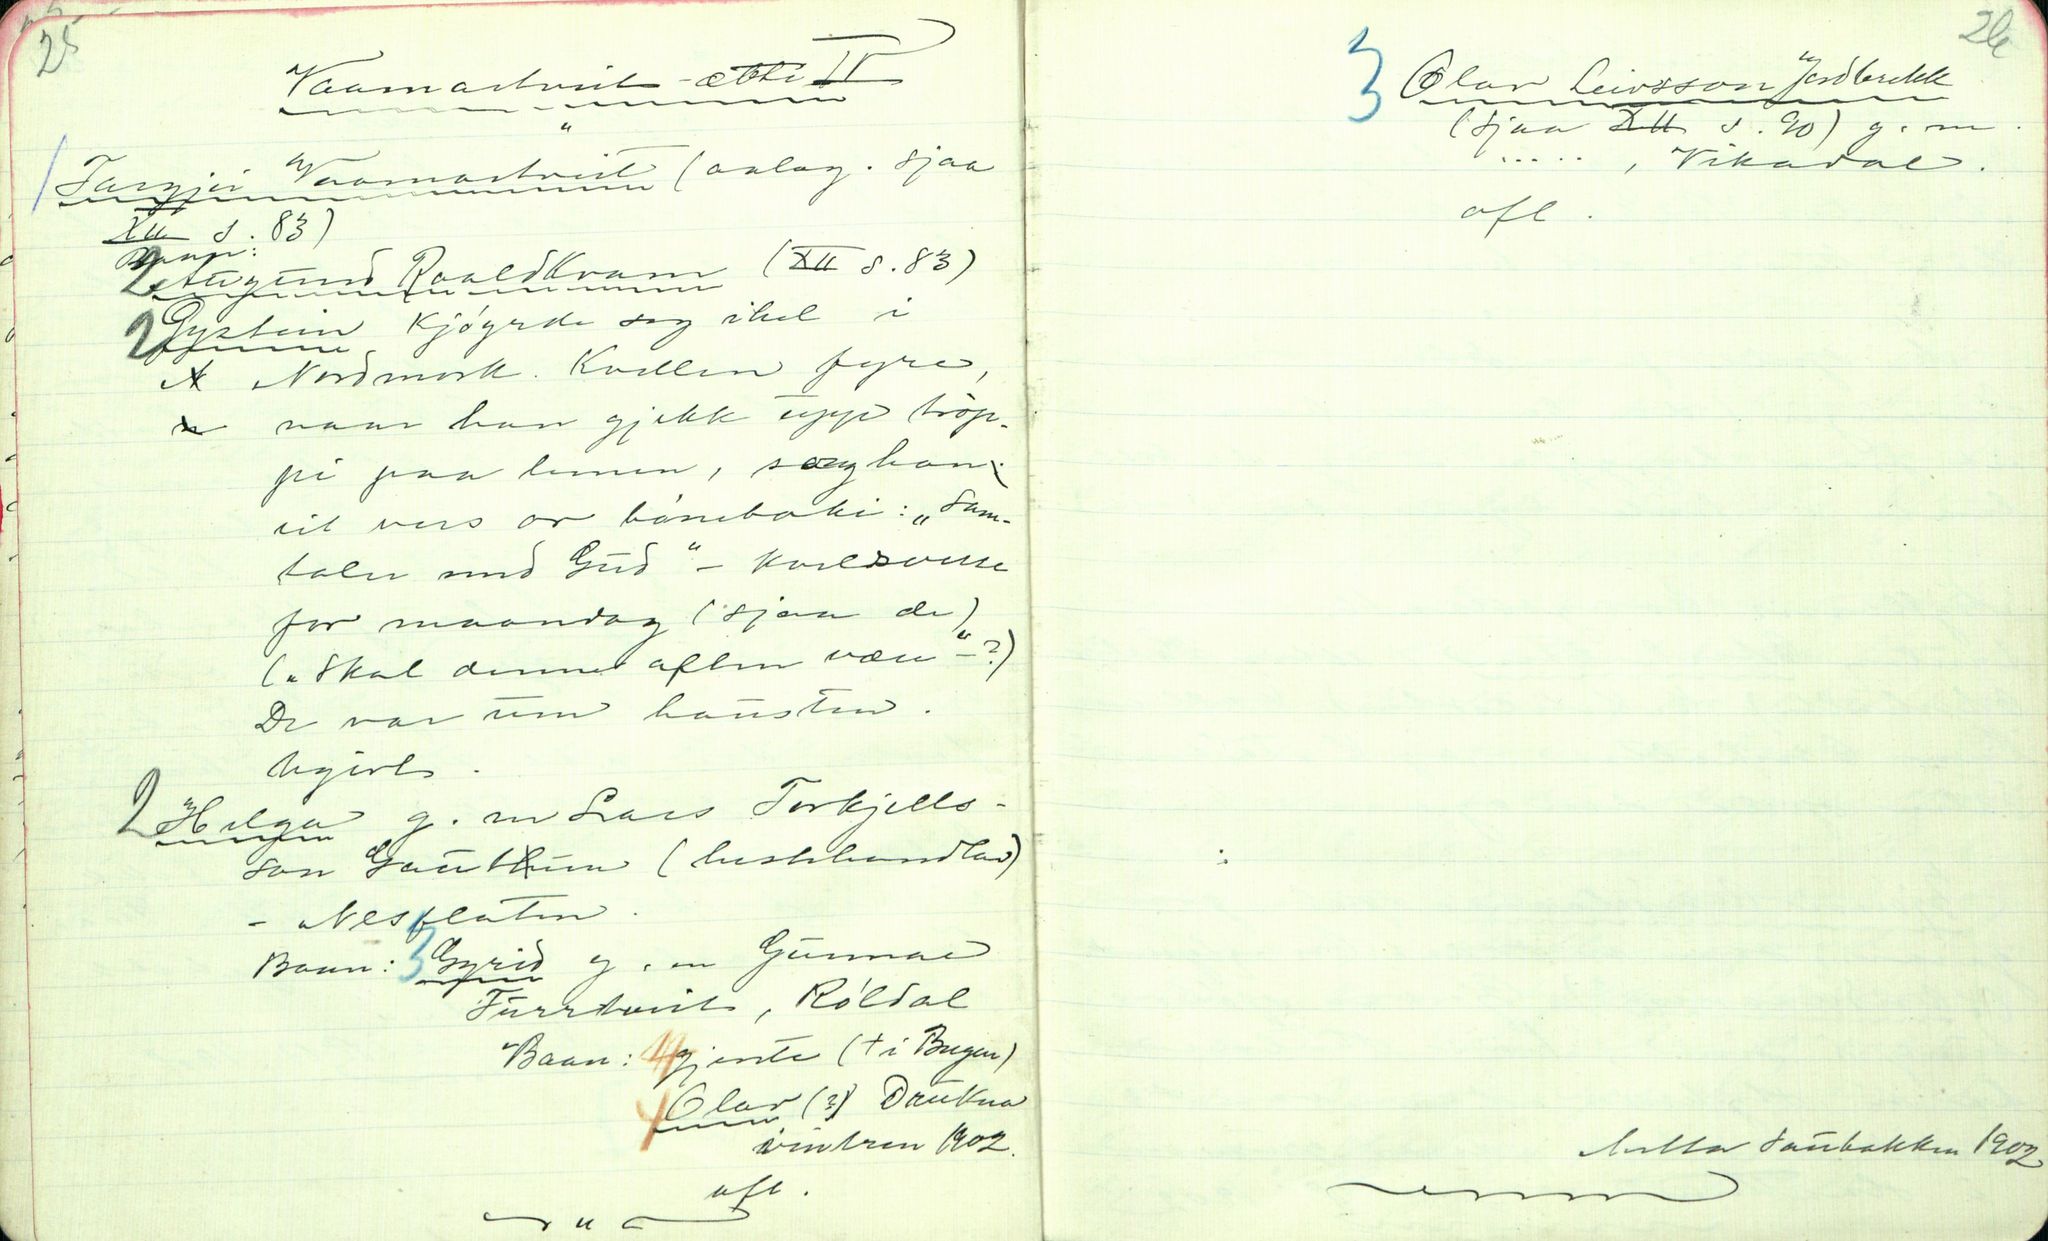 25
Vaamartveit-ætti IV
"
1 Targjei Vaamartveit (aalag. sjaa
XII s. 83)
Baan:
2 Augund Roaldkvam (XII s. 83)
2 Øystein kjøyrde seg ihel i
Nordmork. Kvelden fyre,
naar han gjekk upp trøp-
pi paa lemen, saag han
eit vers or bønboki: "Sam-
taler med Gud" - kveldsverse
for maandag (sjaa de)
("Skal denne aften være" - ?)
De var um hausten.
ugivt.
2 Helga g. m Lars Torkjells-
son Gautun (hestehandlar)
- Nesflaten.
Baan: 3 Gyrid g. m Gunnar
Furetveit, Røldal
Baan: 4 gjente († i Bergen)
4 Olav (?) Drukna
vintren 1902.
ofl.
"
26
3 Olav Leivsson Jordbrekk
(sjaa XII s. 90) g. m.
....., Vikadal.
ofl.
Saubakken 1902